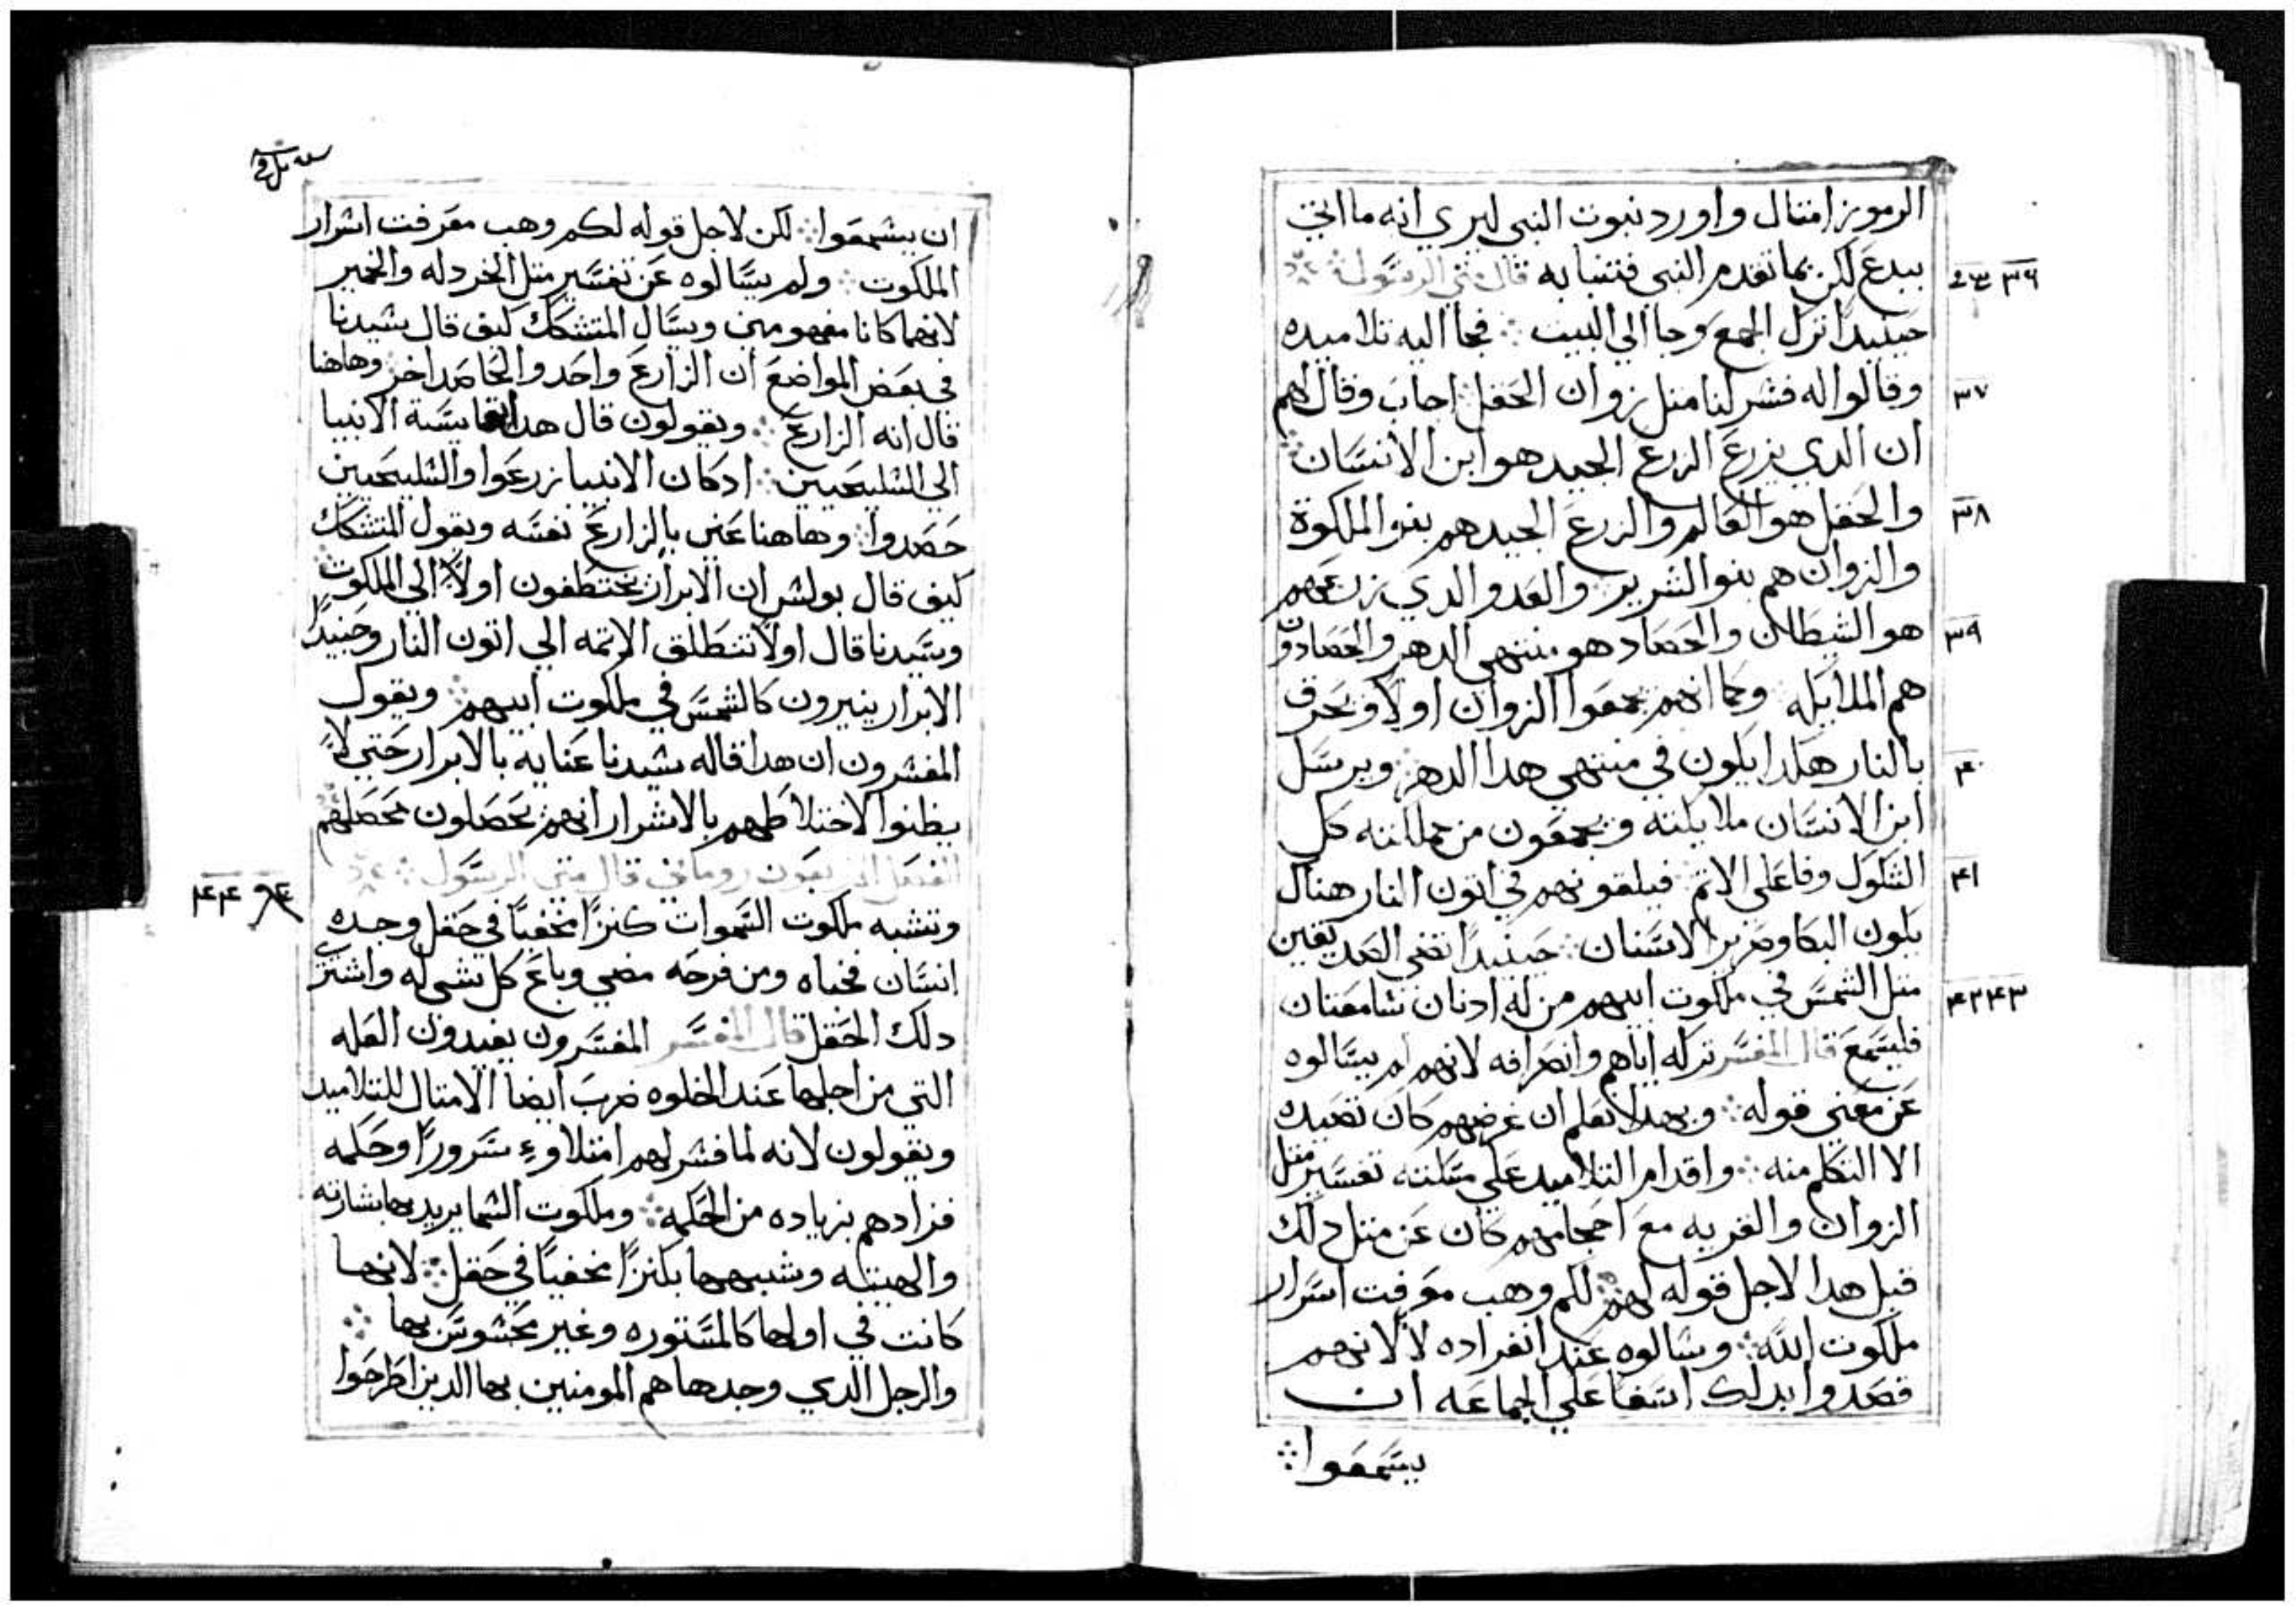 الرموز امتال واورد نبوت النبي ليري انه ما اتي
ببدع لكن بما تقدم النبي فتنبا به قال متي الرسول
٣٦
حينيدا ترك الجمع وجا الي البيت فجا اليه تلاميده
وقالوا له فسر لنا متل زوان الحقل اجاب وقال لهم
٣٧
ان الدي يزرع الزرع الجيد هو ابن الانسان
والحقل هو العالم والزرع الجيد هم بنو الملكوة
٣٨
والزوان هم بنو الشرير والعدو الدي زرعهم
هو الشيطان والحصاد هو منتهي الدهر والحصادون
٣٩
هم الملايكه وكما انهم يجمعوا الزوان اولا ويحرق
بالنار هكدا يكون في منتهي هدا الدهر ويرسل
٤٠
ابن الانسان ملايكته ويجمعون من مملكته كل
الشكوك وفاعلي الاتم فيلقونهم في اتون النار هناك
٤١
يكون البكا وصرير الاسنان حينيدا تضي الصديقين
متل الشمس في ملكوت ابيهم من له ادنان سامعتان
٤٢ ٤٣
فليسمع قال المفسر تركه اياهم وانصرافه لانهم لم يسالوه
عن معني قوله وبهدا نعلم ان غرضهم كان تصيده
الا التكلم منه واقدام التلاميد علي مسلته تفسير متل
الزوان والقريه مع احجامهم كان عن متل دلك
قبل هدا لاجل قوله لهم لكم وهب معرفت اسرار
ملكوت الله وسالوه عند انفراده لا لانهم
قصدوا بدلك اسفا علي الجماعه ان
يستمعوا
ان يسمعوا لكن لاجل قوله لكم وهب معرفت اسرار
الملكوت ولم يسالوه عن تفسير متل الخردله والخمير
لانهما كانا مفهومين ويسال المتشكك كيف قال سيدنا
في بعض المواضع ان الزارع واحد والحاصد اخر وهاهنا
قال انه الزارع ويقولون قال هدا بمقايسة الانبيا
الي السليحيين ادكان الانبيا زرعوا والسليحيين
حصدوا وهاهنا عني بالزارع نفسه ويقول المتشكك
كيف قال بولس ان الابرار يختطفون اولا الي الملكوت
وسيدنا قال اولا تنطلق الاتمه الي اتون النار وحينيدا
الابرار ينيرون كالشمس في ملكوت ابيهم ويقول
المفسرون ان هدا قاله سيدنا عنايه بالابرار حتي لا
يظنوا لاختلاطهم بالاشرار انهم يحصلون محصلهم
الفصل الاربعون روماني قال متي الرسول
٤٤
وتشبه ملكوت السموات كنزا مخفيا في حقل وجده
انسان فخباه ومن فرحه مضي وباع كل شي له واشتري
دلك الحقل قال المفسر المفسرون يفيدون العله
التي من اجلها عند الخلوه ضرب ايضا الامتال للتلاميد
ويقولون لانه لما فسر لهم امتلاوء سرورا وحكمه
فزادهم بزياده من الحكمه وملكوت السما يريد بها بشارته
والهيته وشبهها بكنزا مخفيا في حقل لانها
كانت في اولها كالمستوره وغير محسوس بها
والرجل الدي وجدها هم المومنين بها الدين اطرحوا